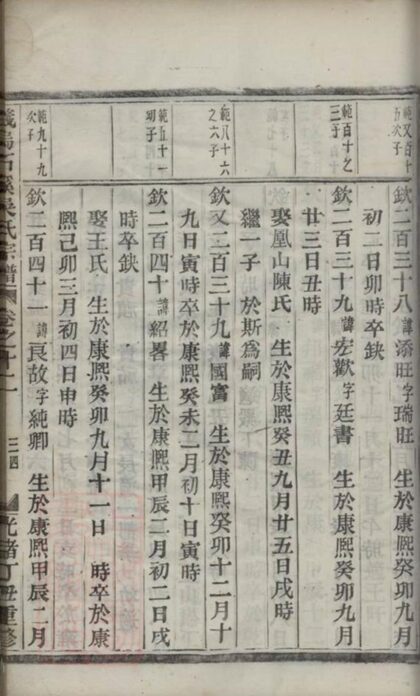 範又百十
五次子
欽二百三十八諱添旺字瑞旺 生於康熙癸卯九月
初二日卯時卒缺
範百十之
三子
欽二百三十九諱宏歡字廷書 生於康熙癸卯九月
廿三日丑時
娶凰山陳氏 生於康熙癸丑九月廿五日戌時
繼一子 於斯為嗣
範八十六
之六子
欽又二百三十九諱國富 生於康熙癸卯十二月十
九日寅時卒於康熙癸未二月初十日寅時
範五十一
初子
欽二百四十諱紹畧 生於康熙甲辰二月初二日戌
時卒缺
娶王氏 生於康熙癸卯九月十一日 時卒於康
熙己卯三月初四日申時
範九十九
次子
欽二百四十一諱良故字純卿 生於康熙甲辰二月
石溪吳氏宗譜 卷之九十二 三四 光緒丁丑重修